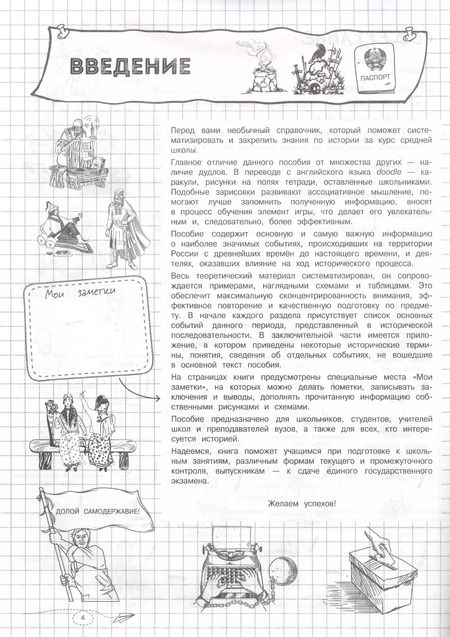 ВВЕДЕНИЕ
ПАСПОРТ
Перед вами необычный справочник, который поможет систе-
матизировать и закрепить знания по истории за курс средней
школы.
Главное отличие данного пособия от множества других — на-
личие дудлов. В переводе с английского языка doodle — ка-
ракули, рисунки на полях тетради, оставленные школьниками.
Подобные зарисовки развивают ассоциативное мышление, по-
могают лучше запомнить полученную информацию, вносят
в процесс обучения элемент игры, что делает его увлекатель-
ным и, следовательно, более эффективным.
Пособие содержит основную и самую важную информацию
о наиболее значимых событиях, происходивших на территории
России с древнейших времён до настоящего времени, и дея-
телях, оказавших влияние на ход исторического процесса.
Весь теоретический материал систематизирован, он сопрово-
ждается примерами, наглядными схемами и таблицами. Это
обеспечит максимальную сконцентрированность внимания, эф-
фективное повторение и качественную подготовку по предме-
ту. В начале каждого раздела присутствует список основных
событий данного периода, представленный в исторической
последовательности. В заключительной части имеется прило-
жение, в котором приведены некоторые исторические терми-
ны, понятия, сведения об отдельных событиях, не вошедшие
в основной текст пособия.
На страницах книги предусмотрены специальные места «Мои
заметки», на которых можно делать пометки, записывать за-
ключения и выводы, дополнять прочитанную информацию соб-
ственными рисунками и схемами.
Пособие предназначено для школьников, студентов, учителей
школ и преподавателей вузов, а также для всех, кто интере-
суется историей.
Надеемся, книга поможет учащимся при подготовке к школь-
ным занятиям, различным формам текущего и промежуточного
контроля, выпускникам — к сдаче единого государственного
экзамена.
Желаем успехов!
Мои заметки
ДОЛОЙ САМОДЕРЖАВИЕ!
4